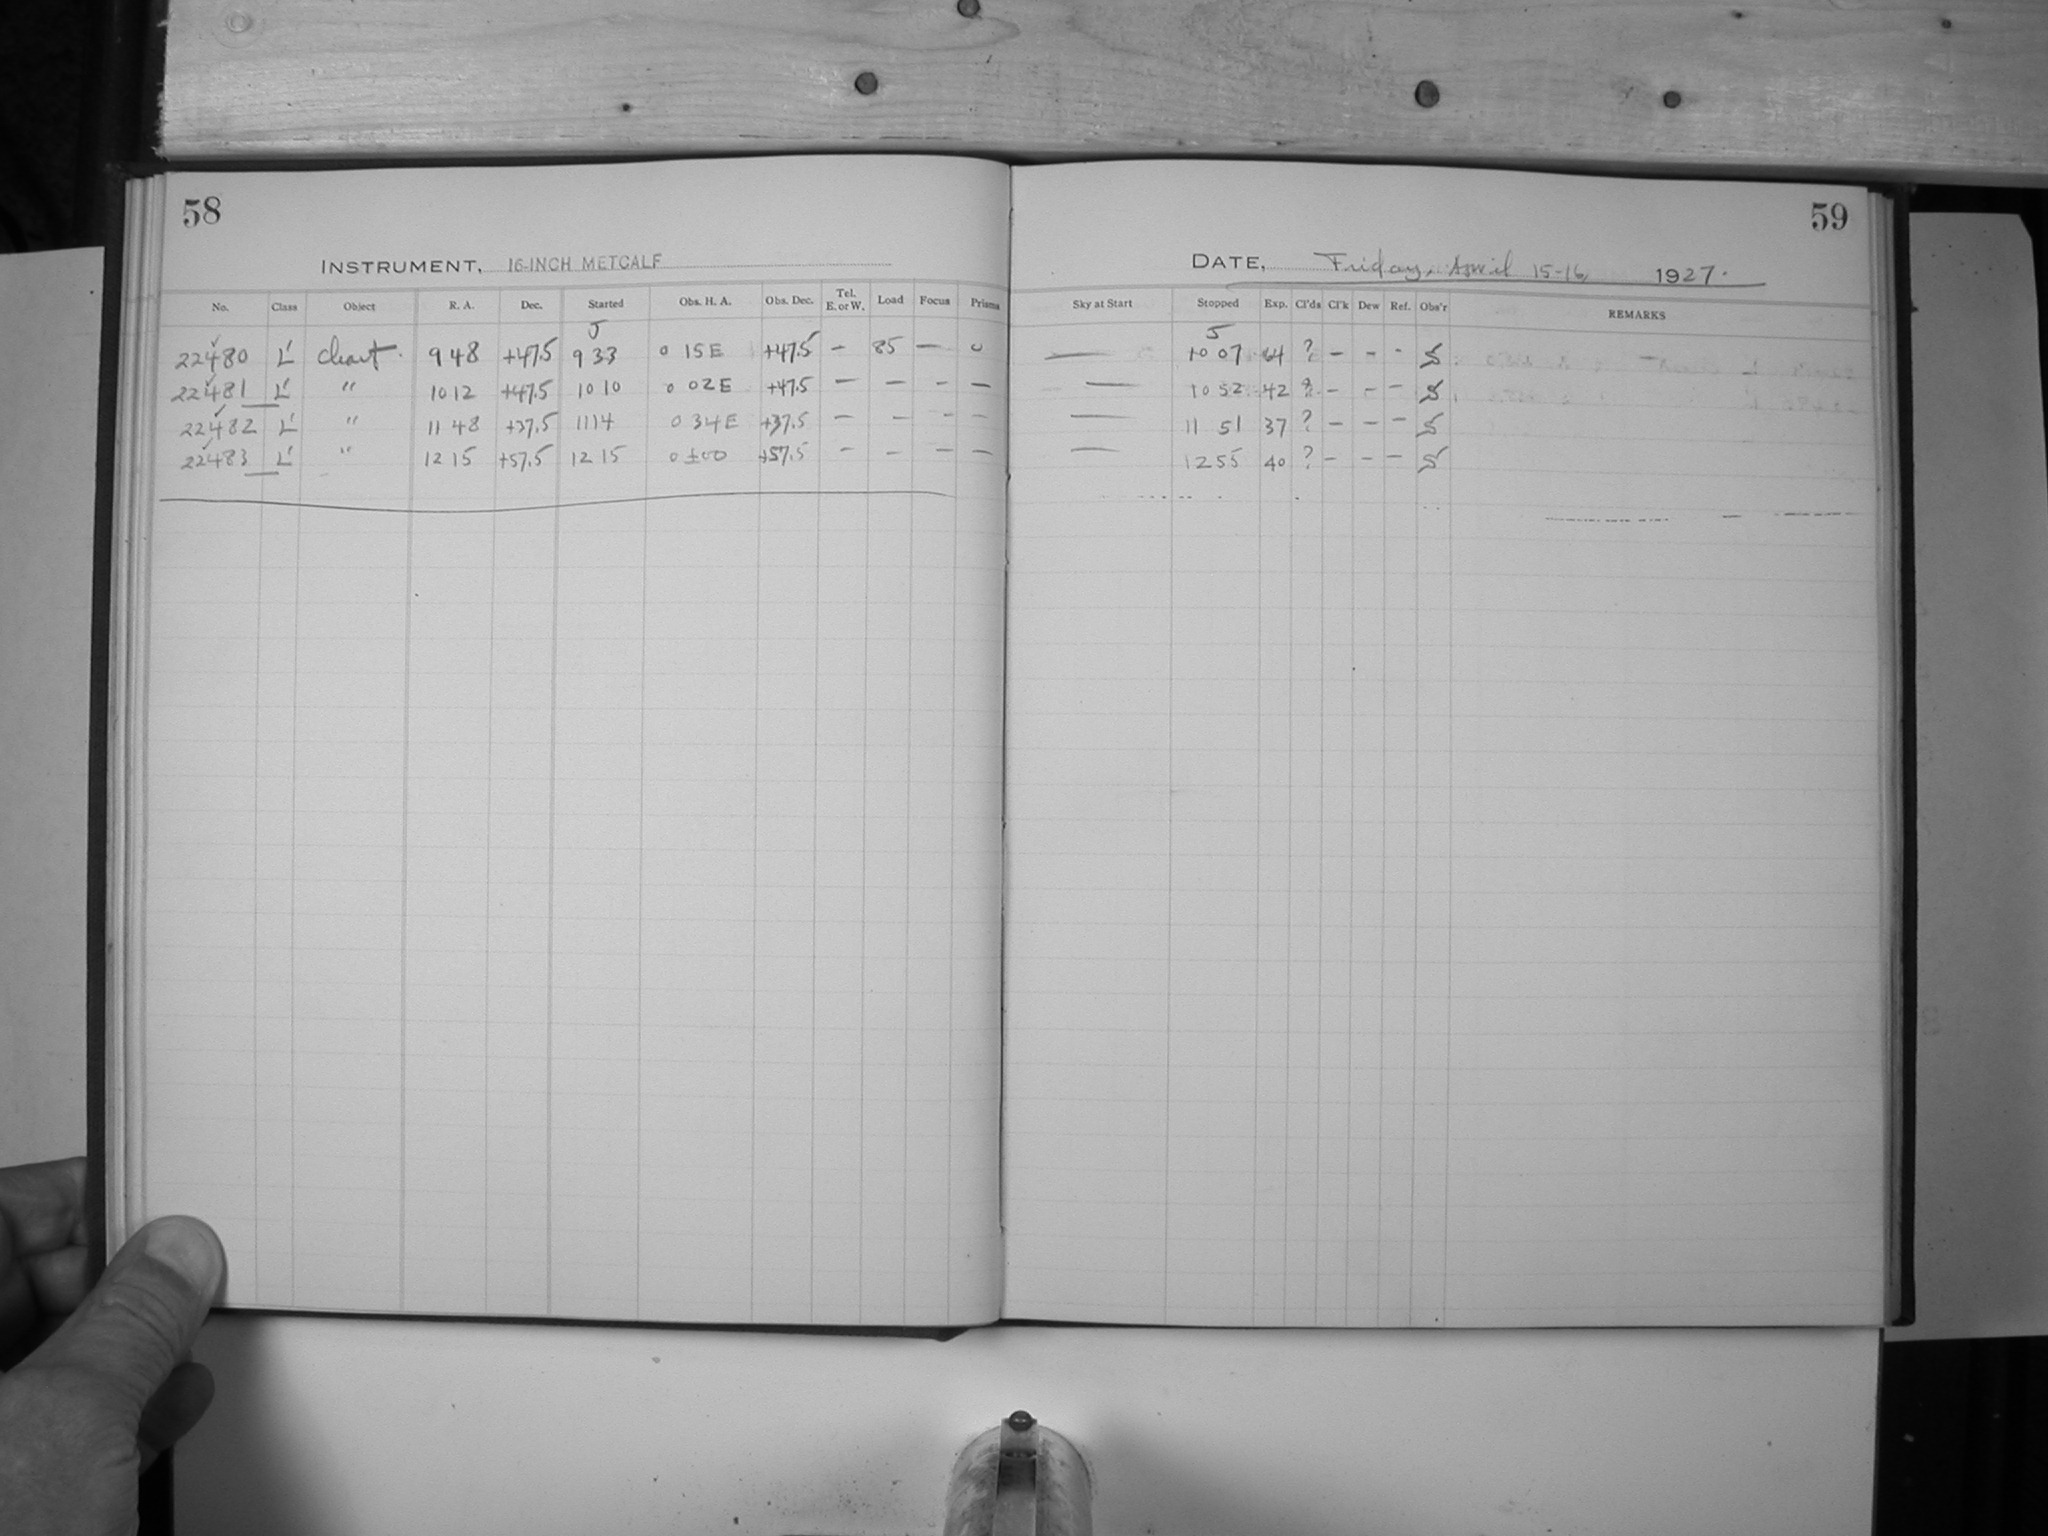 58
INSTRUMENT, 16-INCH METCALF
No. Class Object R. A. Dec. Started Obs. H. A. Obs. Dec. Tel. E. or W. Load Focus Prisms
22480 L' Chart 9 48 +47.5 9 33 0 15 E +47.5 - 85 - 0
22481 L' " 10 12 +47.5 10 10 0 02 E +47.5 - - - -
22482 L' " 11 48 +37.5 11 14 0 34 E +37.5 - - - -
22483 L' " 12 15 +57.5 12 15 0 ±00 +57.5 - - - -
59
DATE, Friday, April 15-16, 1927.
Sky at Start Stopped Exp. Cl'ds Cl'k Dew Ref. Obs'r REMARKS
— 10 07 ? - - - S
— 10 52 42 ? - - - S
— 11 51 37 ? - - - S
— 12 55 40 ? - - - S